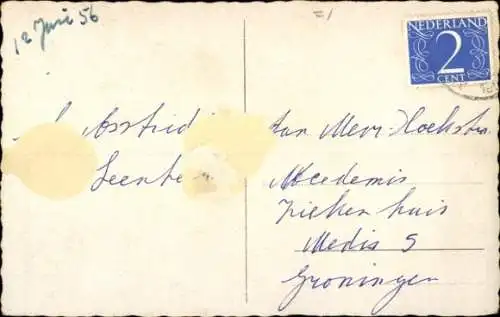 12 Juni 56
NEDERLAND
2
CENT
Astrid
Aan Mevr. Hoekstra
Accedemis
Ziekenhuis
Medis 5
Groningen